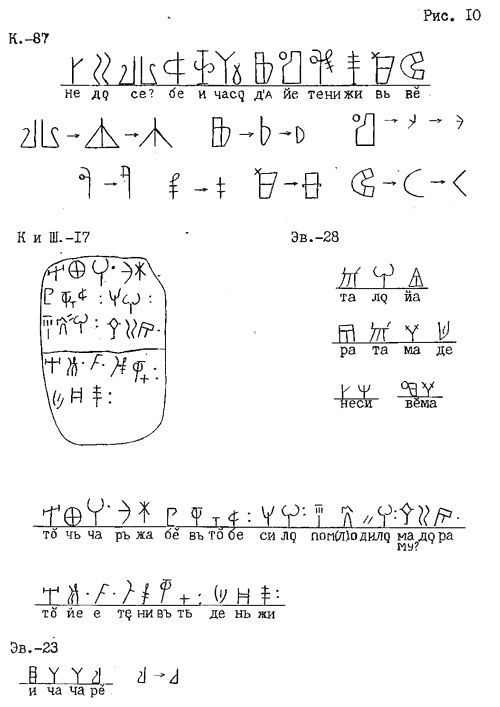 Рис. 10
К.-87
не дǫ се? бе и часǫ д'А йе тенижи вь вě
К и Ш.-17
Эв.-28
та лǫ йа
ра та ма де
неси вěма
тŏ чь ча ръ жа бě въ тŏ бе си лǫ пом(л)одилǫ ма дǫ ра
му?
тŏ йе е тę ни въ ть де нь жи
Эв.-23
и ча ча рě